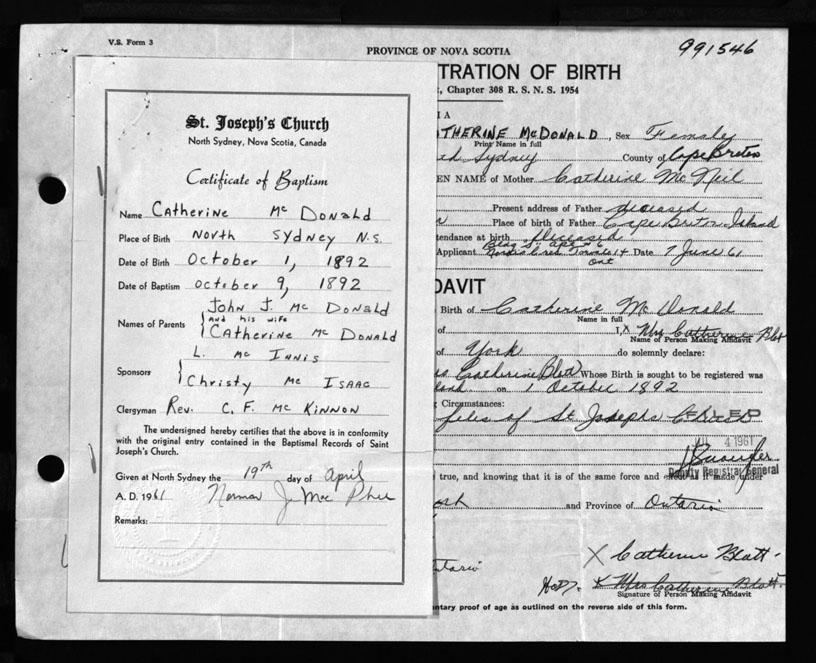 V.S. Form 3
PROVINCE OF NOVA SCOTIA
991546
St. Joseph's Church
North Sydney, Nova Scotia, Canada
Certificate of Baptism
Name Catherine Mc Donald
Place of Birth North Sydney N.S.
Date of Birth October 1, 1892
Date of Baptism October 9, 1892
Names of Parents
John J. Mc Donald
and his wife
Catherine Mc Donald
Sponsors
L. Mc Innis
Christy Mc Isaac
Clergyman Rev. C. F. Mc Kinnon
The undersigned hereby certifies that the above is in conformity
with the original entry contained in the Baptismal Records of Saint
Joseph's Church.
Given at North Sydney the 19th day of April
A. D. 1961 Norman J. Mac Phee
Remarks:
TRATION OF BIRTH
t, Chapter 308 R. S. N. S. 1954
I A
ATHERINE McDONALD, Sex Female
Print Name in full
Sydney County of Cape Breton
EN NAME of Mother Catherine Mc Neil
Present address of Father deceased
Place of birth of Father Cape Breton Island
tendance at birth deceased
Applicant Toronto 14 Date 7 June 61
Ont
DAVIT
Birth of Catherine McDonald
Name in full
of I, X Mrs Catherine Blatt
Name of Person Making Affidavit
of York do solemnly declare:
Catherine Blatt Whose Birth is sought to be registered was
on 1 October 1892
g Circumstances:
files of St Josephs Church
FILED
4 1961
Deputy Registrar General
true, and knowing that it is of the same force and effect as if made under
and Province of Ontario
X Catherine Blatt
ntario
X Mrs Catherine Blatt
Signature of Person Making Affidavit
ntary proof of age as outlined on the reverse side of this form.